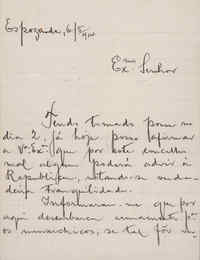 Espozende, 6/5/911
Exmo Senhor
Tendo tomado posse no
dia 2, já hoje posso afirmar
a V. Exa que por este concelho
mal algum poderá advir á
Republica, notando-se verda-
deira tranquilidade.
Informaram-me que por
aqui desembarca armamento pa
os monarchicos, se tal fôr